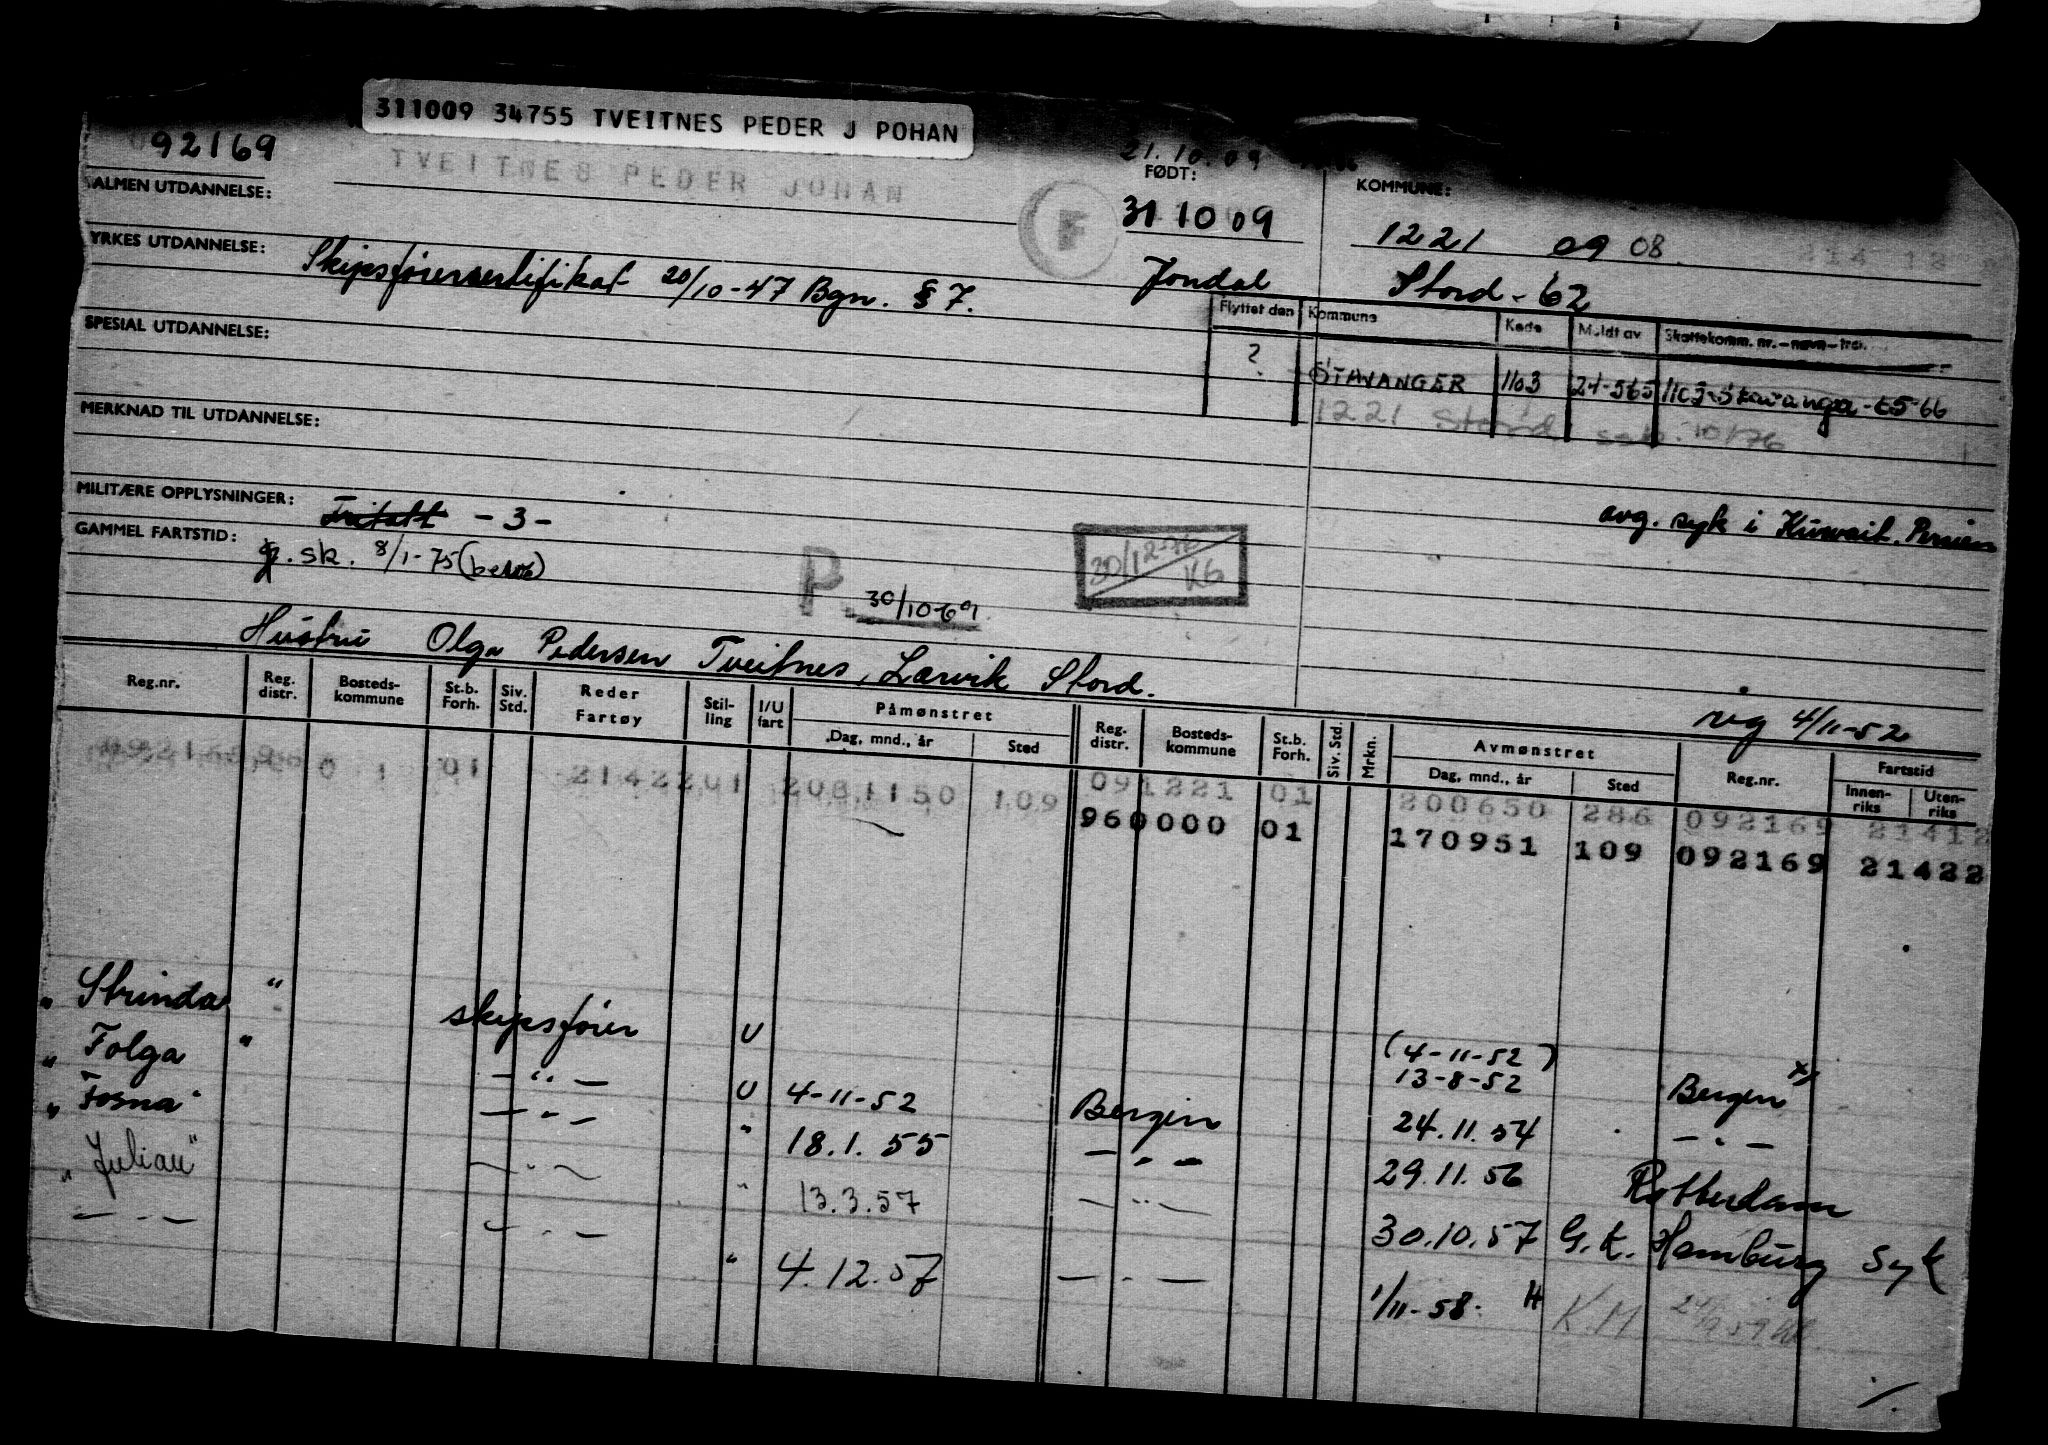 311009 34755 TVEITNES PEDER J POHAN
92169
TVEITNES PEDER JOHAN
21.10.09
ALMEN UTDANNELSE:
FØDT:
KOMMUNE:
F
31 10 09
1221 09 08.
YRKES UTDANNELSE: Skipsførersertifikat 20/10-47 Bgn. § 7.
Jondal
Stord - 62
Flyttet den Kommune Kode Meldt av Skattekomm. nr. - navn - trsi.
SPESIAL UTDANNELSE:
? STAVANGER 1103 21-565 1103 Stavanger - 65-66
1221 Stord 10/76
MERKNAD TIL UTDANNELSE:
MILITÆRE OPPLYSNINGER: Fritatt - 3 -
avg. syk i Kuwait. Persien
GAMMEL FARTSTID: g. sk. 8/1-75
30/12-76 KG
P. 30/10-69
Hustru Olga Pedersen Tveitnes, Lærvik Stord.
ng 4/11-52
Reg.nr. Reg. distr. Bosteds-kommune St.b. Forh. Siv. Std. Reder Fartøy Stil-ling I/U fart Påmønstret Dag, mnd., år Sted Reg. distr. Bosteds-kommune St.b. Forh. Siv. Std. Mrkn. Avmønstret Dag, mnd., år Sted Reg.nr. Fartstid Innen-riks Uten-riks
01 2142201 2081150 109 091221 01 200650 286 092169 21412
960000 01 170951 109 092169 21422
" Strinda " skipsfører U (4-11-52) 13-8-52 Bergen x)
" Folga " - " - U 4-11-52 Bergen 24.11.54 - " -
" Fosna " - " - " 18.1.55 - " - 29.11.56 Rotterdam
" Julian " - " - " 13.3.57 - " - 30.10.57 G.K. Hamburg Syk
- " - - " - " 4.12.57 - " - 1/11-58. H K.M